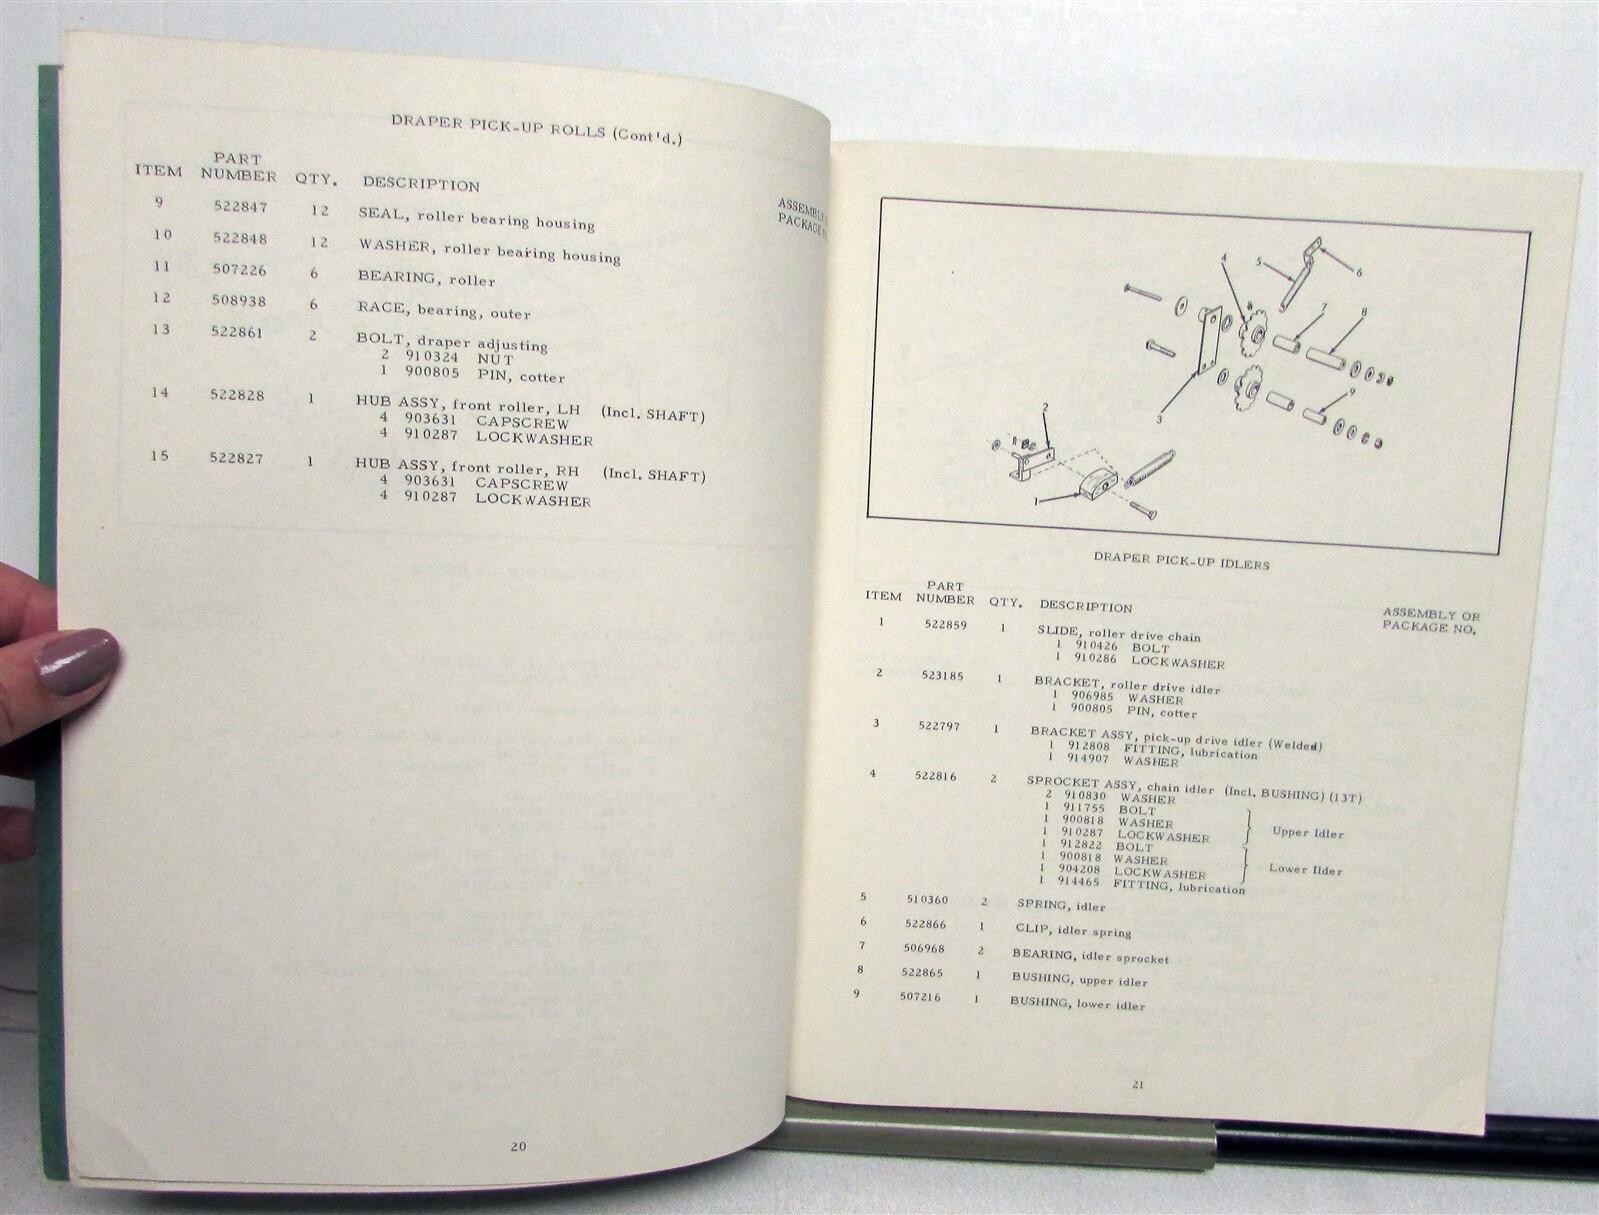 DRAPER PICK-UP ROLLS (Cont'd.)
PART
ITEM NUMBER QTY. DESCRIPTION
ASSEMBLY
PACKAGE
9 522847 12 SEAL, roller bearing housing
10 522848 12 WASHER, roller bearing housing
11 507226 6 BEARING, roller
12 508938 6 RACE, bearing, outer
13 522861 2 BOLT, draper adjusting
2 910324 NUT
1 900805 PIN, cotter
14 522828 1 HUB ASSY, front roller, LH (Incl. SHAFT)
4 903631 CAPSCREW
4 910287 LOCKWASHER
15 522827 1 HUB ASSY, front roller, RH (Incl. SHAFT)
4 903631 CAPSCREW
4 910287 LOCKWASHER
20
4 5 6
7 8
3 9
2
1
DRAPER PICK-UP IDLERS
PART
ITEM NUMBER QTY. DESCRIPTION
ASSEMBLY OR
PACKAGE NO.
1 522859 1 SLIDE, roller drive chain
1 910426 BOLT
1 910286 LOCKWASHER
2 523185 1 BRACKET, roller drive idler
1 906985 WASHER
1 900805 PIN, cotter
3 522797 1 BRACKET ASSY, pick-up drive idler (Welded)
1 912808 FITTING, lubrication
1 914907 WASHER
4 522816 2 SPROCKET ASSY, chain idler (Incl. BUSHING) (13T)
2 910830 WASHER
1 911755 BOLT
1 900818 WASHER Upper Idler
1 910287 LOCKWASHER
1 912822 BOLT
1 900818 WASHER Lower Ilder
1 904208 LOCKWASHER
1 914465 FITTING, lubrication
5 510360 2 SPRING, idler
6 522866 1 CLIP, idler spring
7 506968 2 BEARING, idler sprocket
8 522865 1 BUSHING, upper idler
9 507216 1 BUSHING, lower idler
21